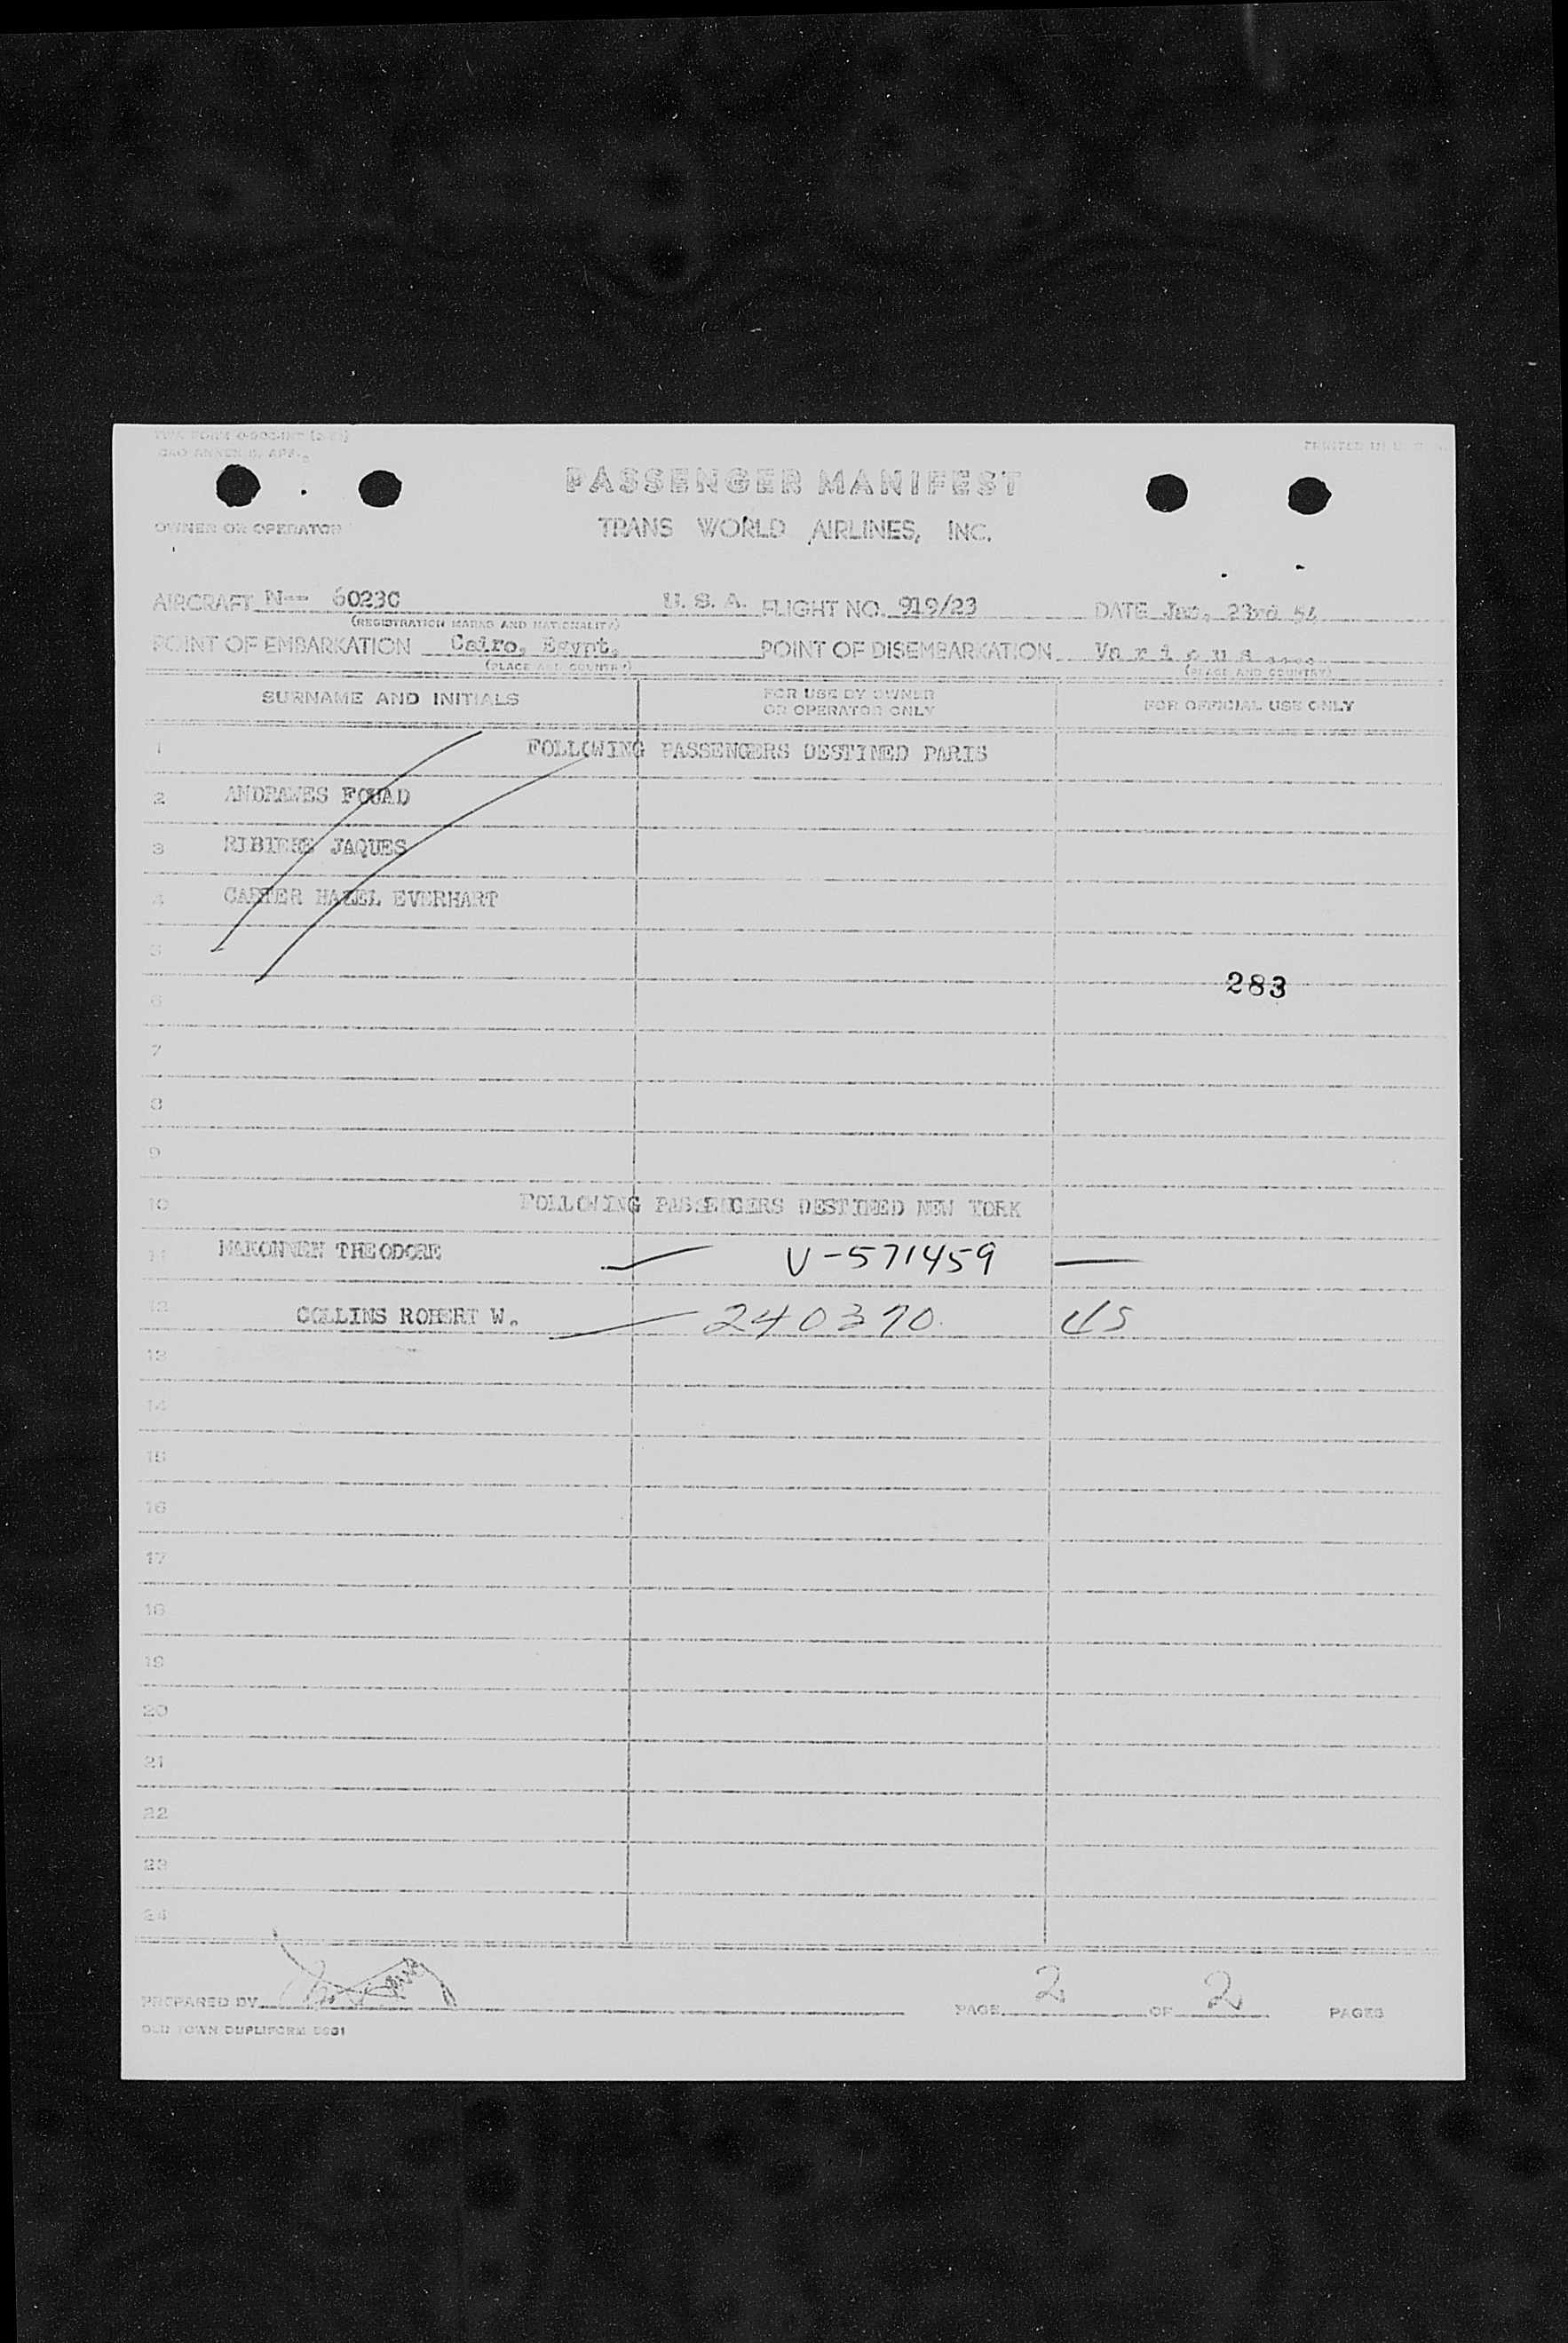 PRINTED IN U. S. A.
PASSENGER MANIFEST
OWNER OR OPERATOR TRANS WORLD AIRLINES, INC.
AIRCRAFT N-- 6023C U. S. A. FLIGHT NO. 919/23 DATE Jan, 23rd 54
(REGISTRATION MARKS AND NATIONALITY)
POINT OF EMBARKATION Cairo, Egypt, POINT OF DISEMBARKATION V a r i o u s ....
(PLACE AND COUNTRY) (PLACE AND COUNTRY)
SURNAME AND INITIALS FOR USE BY OWNER OR OPERATOR ONLY FOR OFFICIAL USE ONLY
1 FOLLOWING PASSENGERS DESTINED PARIS
2 ANDRAWES FOUAD
3 RIBIERE JAQUES
4 CARTER HAZEL EVERHART
5
283
6
7
8
9
10 FOLLOWING PASSENGERS DESTINED NEW YORK
11 MAKONNEN THEODORE V-571459 —
12 COLLINS ROBERT W. 240370 US
13
14
15
16
17
18
19
20
21
22
23
24
PREPARED BY PAGE 2 OF 2 PAGES
OLD TOWN DUPLIFORM 5631